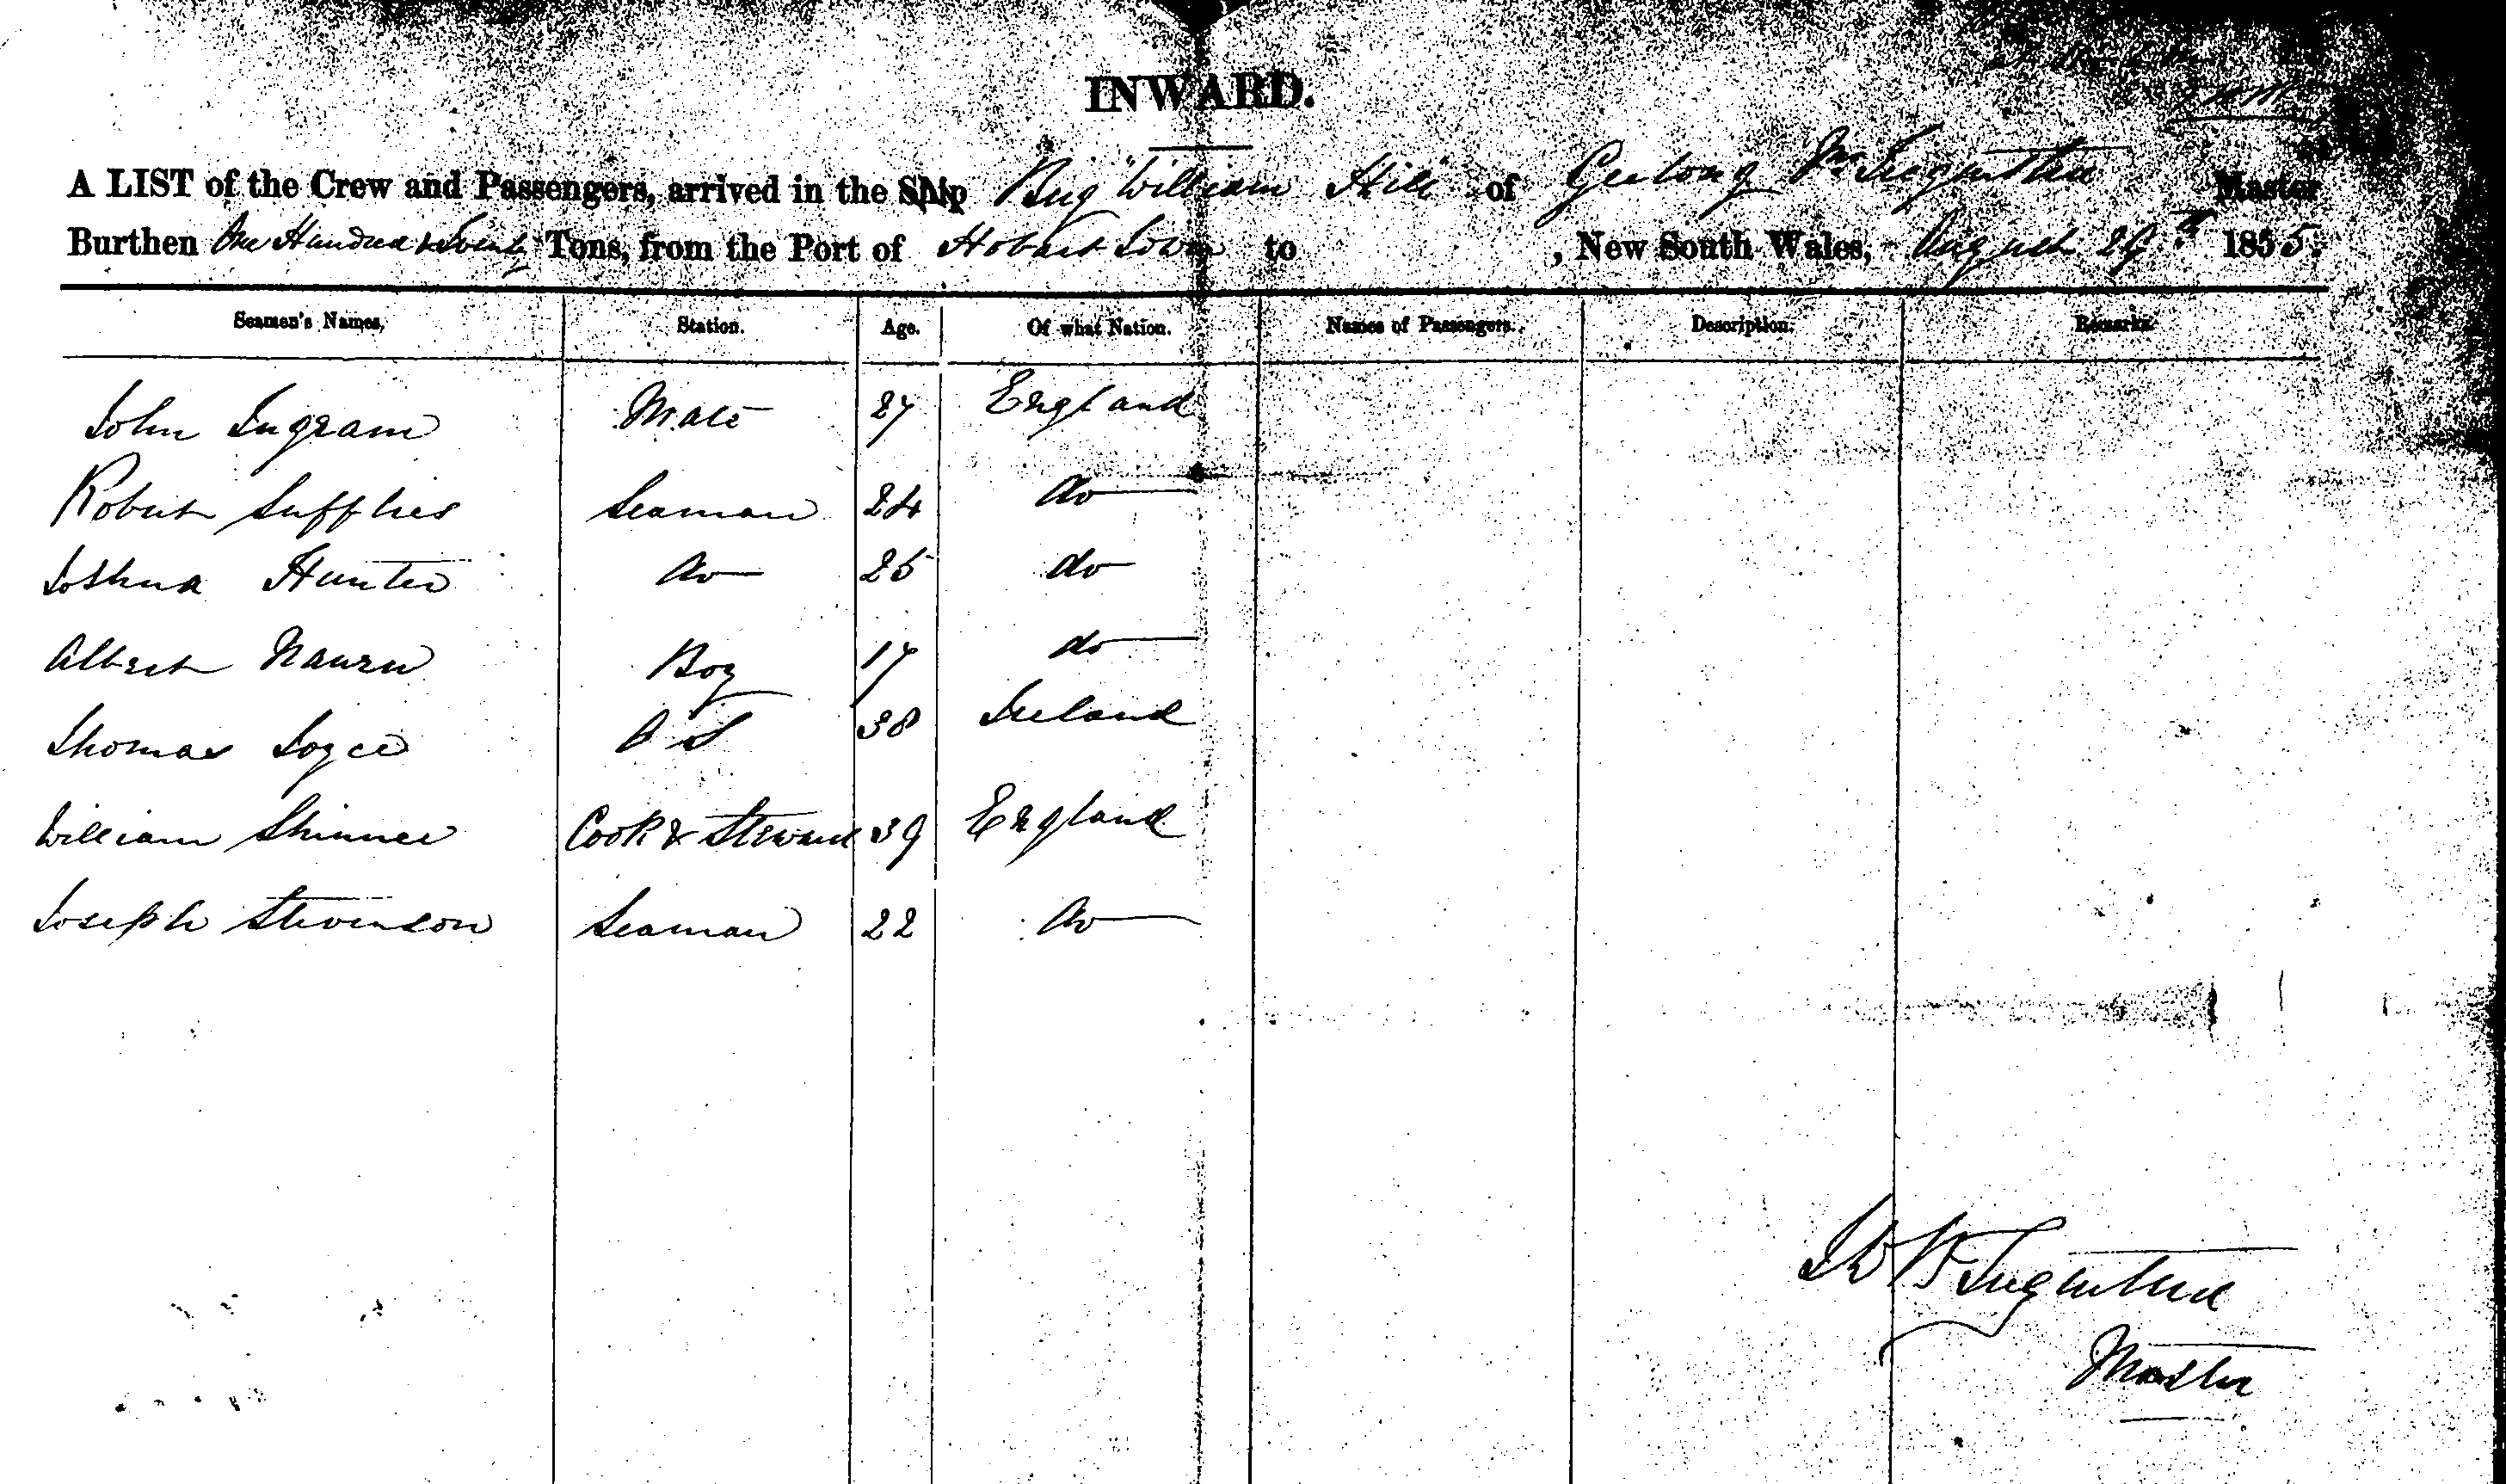 INWARD.
A LIST of the Crew and Passengers, arrived in the Ship Brig "William Hill" of Geelong Master
Burthen One Hundred & Tons, from the Port of Hobart Town to , New South Wales, August 29th 1855.
Seamen's Names, Station. Age. Of what Nation. Names of Passengers. Description. Remarks.
John Ingram Mate 27 England
Robert Seaman 24 do
Joshua Hunter do 25 do
Albert Boy 17 do
Thomas Joyce O S 38 Ireland
William Skinner Cook & Steward 39 England
Joseph Stevenson Seaman 22 do
Master